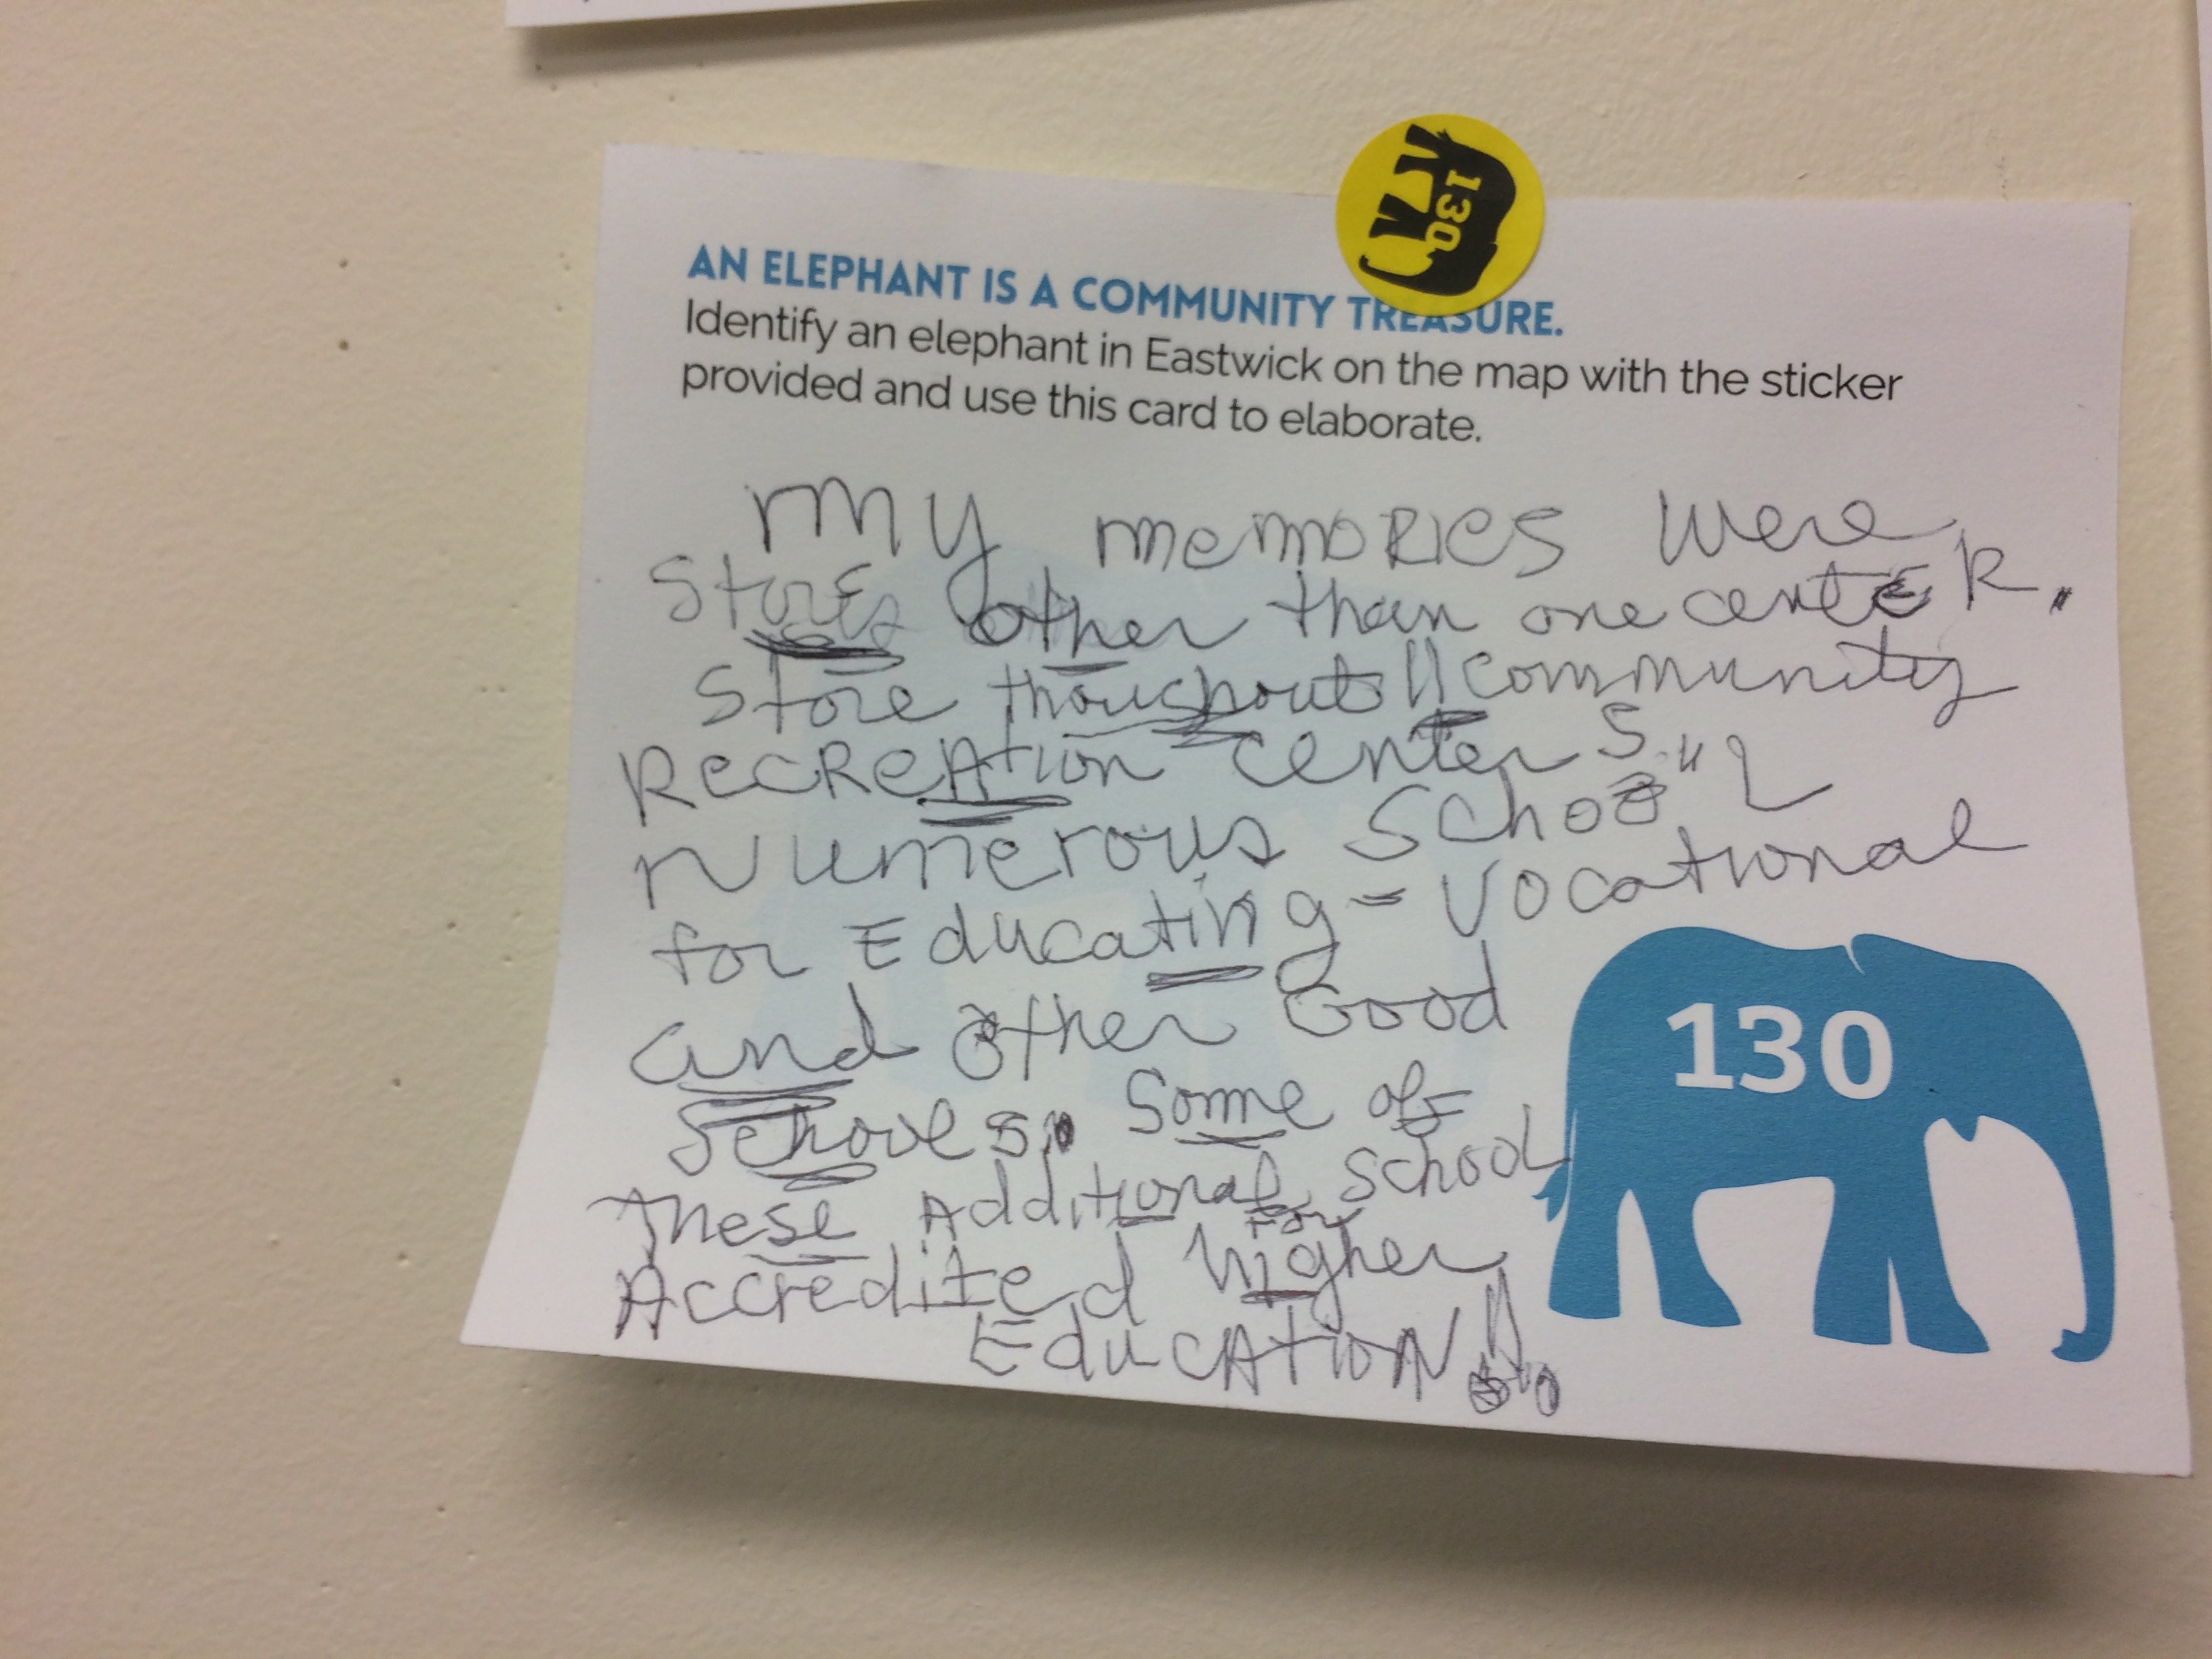 130
AN ELEPHANT IS A COMMUNITY TREASURE.
Identify an elephant in Eastwick on the map with the sticker
provided and use this card to elaborate.
My memories were
Stores other than one center.
Store thoughout "community
Recreation centers."
Numerous School
for Educating - Vocational
and other Good
Schools. Some of
these Additional School
for
Accredited higher
Education!!
130